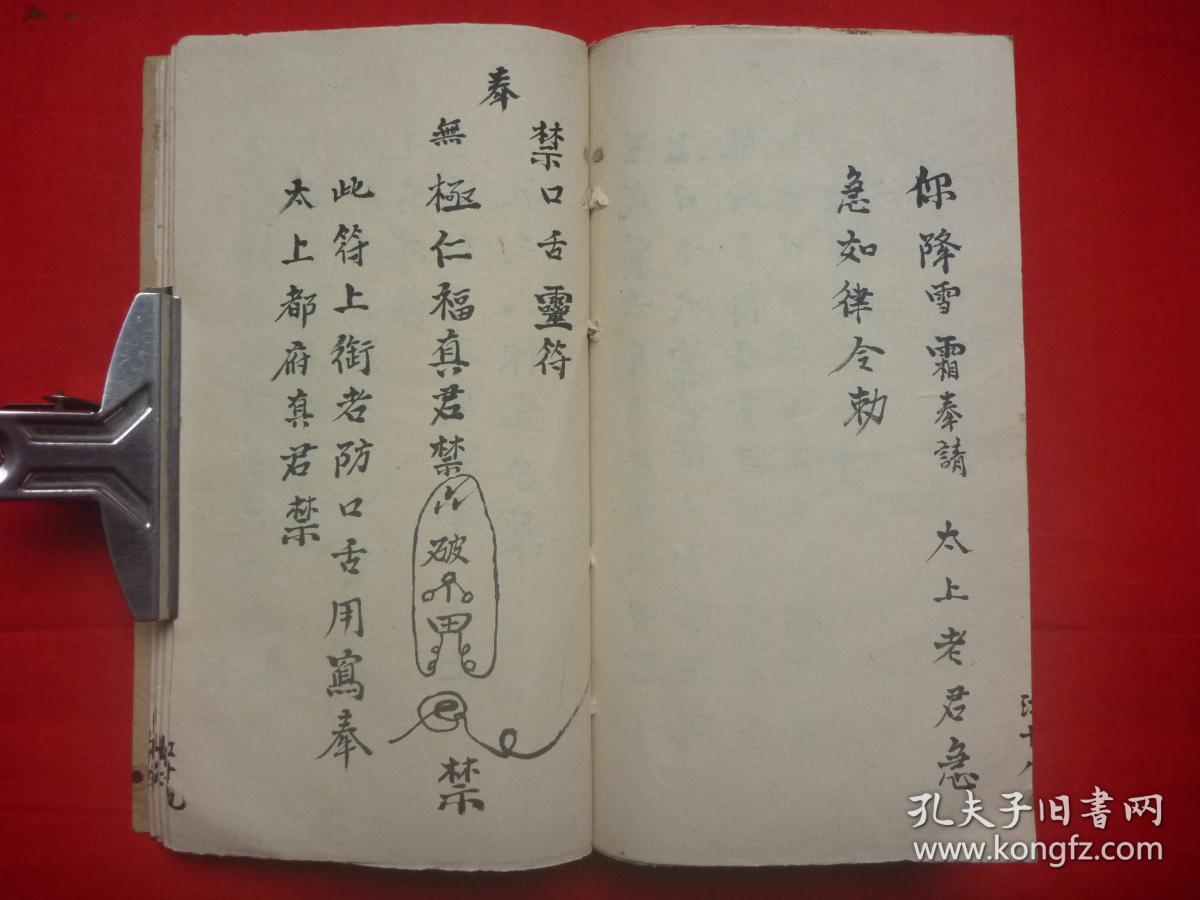 你降雪霜奉請 太上老君急
急如律令勅
禁口舌靈符
奉
無極仁福真君禁
破
禁
此符上銜者防口舌用寫奉
太上都府真君禁
孔夫子旧書网
www.kongfz.com